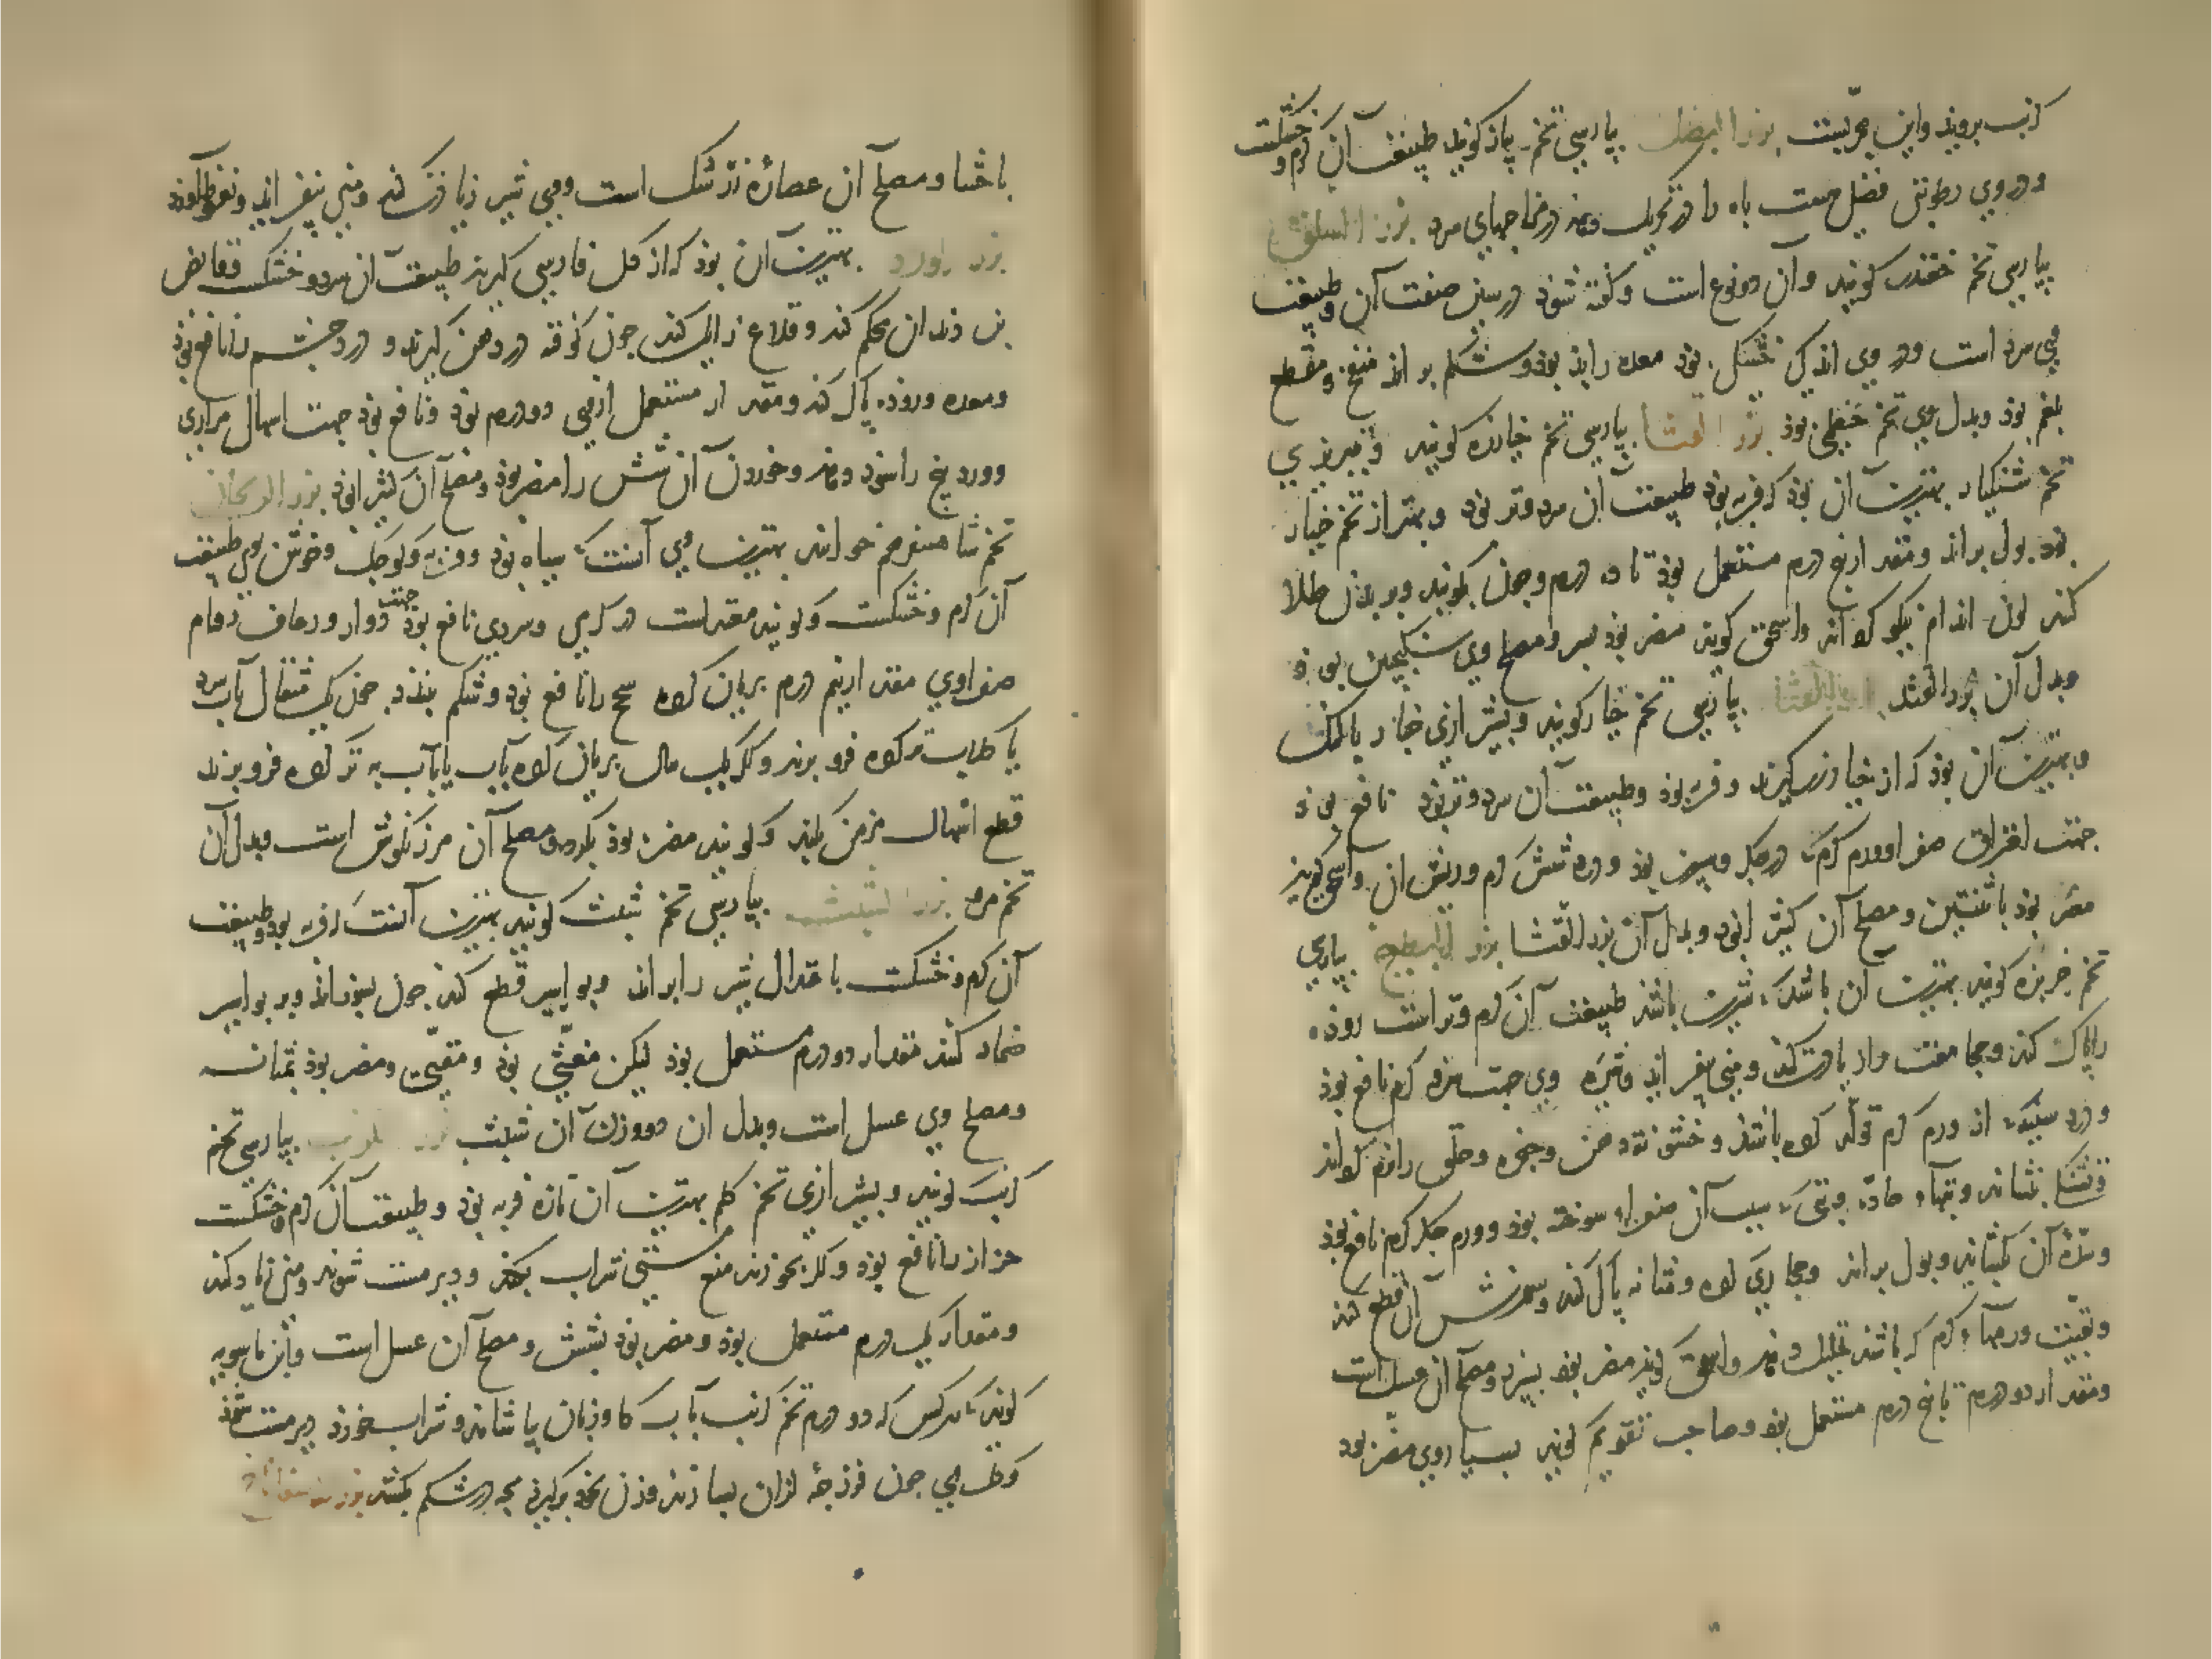 کرنب بروید و این مجربست بزر البصل بپارسی تخم پیاز کویند طبیعت آن کرم و خشکست
و در وی رطوبتی فضلی هست باه را در تحریک دهد در مزاجهای سرد بزر السلق
بپارسی تخم چغندر کویند و آن دو نوع است و کفته شود در سین صفت آن و طبیعت
وی سرد است و در وی اندکی خشکی بود معده را بد بود و شکم براند منفخ و مقطع
بلغم بود و بدل وی تخم خطمی بود بزر القثا بپارسی تخم خیارزه کویند و بتبریزی
تخم شنکیار بهترین آن بود که فربه بود طبیعت آن سرد و تر بود و بهتر از تخم خیار
بود بول براند و مقدار پنج درم مستعمل بود تا ده درم و چون بکویند و بر بدن طلا
کنند لون اندام نیکو کرداند و اسحق کوید مضر بود بسپرز و مصلح وی سکنجبین بود
و بدل آن بزر القثد بپارسی تخم خیار کویند و بشیرازی خیار بالنک
و بهترین آن بود که از خیار زرد کیرند و فربه بود و طبیعت آن سرد و تر بود نافع بود
جهت احتراق صفرا و ورم کرم که در جکر و سپرز بود و درد شش کرم و ریش آن و اسحق کوید
مضر بود بانثیین و مصلح آن کثیرا بود و بدل آن بزر القثا بزر البطیخ بپارسی
تخم خربزه کویند بهترین آن باشد که شیرین باشد طبیعت آن کرم و تر است روده
را پاک کند و مجامعت را زیادت کند و منی بیفزاید و شیره وی جهت سرفه کرم نافع بود
و درد سینه که از ورم کرم تولد کرده باشد و خشونت دهن و حنجره و حلق را نرم کرداند
و تشنکی بنشاند و تبهاء حاده و تبی که سبب آن صفراء سوخته بود و ورم جکر کرم نافع بود
و سده آن بکشاید و بول براند و مجاری کرده و مثانه پاک کند و سوزش آن قطع کند
و بقیت ورمهاء کرم که باشد تحلیل دهد و اسحق کوید مضر بود بسپرز و مصلح آن عسل است
و مقدار دو درم تا پنج درم مستعمل بود و صاحب تقویم کوید بسیار وی مضر بود
باحشا و مصلح آن عصاره زرشک است و وی شیر زیادت کند و منی بیفزاید و نعوظ آورد
بزر الورد بهترین آن بود که از کل فارسی کیرند طبیعت آن سرد و خشکست و قابض
بن دندان محکم کند و قلاع زایل کند چون کوفته در دهن کیرند و درد چشم را نافع بود
و معده و روده پاک کند و مقدار مستعمل از وی دو درم بود و نافع بود جهت اسهال مراری
و ورد بیخ را سود دهد و خوردن آن شش را مضر بود و مصلح آن کثیرا بود بزر الریحان
تخم شاهسفرم خوانند بهترین وی آنست که سیاه بود و فربه و کوچک و خوش بوی طبیعت
آن کرم و خشکست و کویند معتدلست در کرمی و سردی نافع بود جهت دوار و رعاف و مام
صفراوی مقدار نیم درم بریان کرده سحج را نافع بود و شکم ببندد چون یک مثقال بآب سرد
یا کلاب تر کرده فرو برند و اکر یک مثقال بریان کرده بآب یا بآب به تر کرده فرو برند
قطع اسهال مزمن بکند و کویند مضر بود بکرده و مصلح آن مرزنکوش است و بدل آن
تخم مرو بزر الشبث بپارسی تخم شبت کویند بهترین آنست که فربه بود و طبیعت
آن کرم و خشکست باعتدال شیر را براند و بواسیر قطع کند چون بسوزانند و بر بواسیر
ضماد کنند مقدار دو درم مستعمل بود لیکن مغثی بود و مقیی و مضر بود بمثانه
و مصلح وی عسل است و بدل آن دو وزن آن شبث بزر الکرنب بپارسی تخم
کرنب کویند و بشیرازی تخم کلم بهترین آن تازه فربه بود و طبیعت آن کرم و خشکست
حزاز را نافع بود و اکر بخورند منع مستی شراب بکند و دیر مست شوند و منی زیاد کند
و مقدار یک درم مستعمل بود و مضر بود بشش و مصلح آن عسل است و ابن ماسویه
کوید که هر کس که دو درم تخم کرنب بآب کاوزبان بیاشامد و شراب خورد دیر مست شود
و طبری چون فرزجه از آن بسازند و زن بخود برکیرد بچه در شکم بکشد بزر